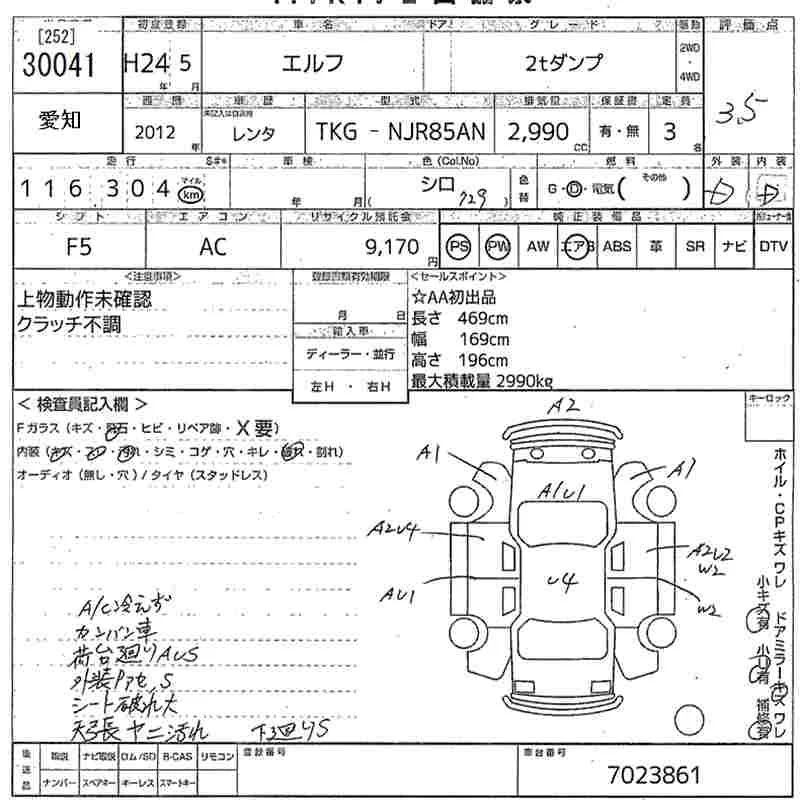 [252] 初度登録 車名 ドア グレード 駆動 評価点
30041 H24 5 エルフ 2tダンプ 2WD
年 月 4WD
愛知 車歴 型式 排気量 保証書 定員 3.5
2012 年 レンタ TKG - NJR85AN 2,990 CC 有・無 3 名
走行 S#* 車検 色(Col.No) 燃料 外装 内装
116304 マイル km 年 月 ( シロ 729 ) 色替 G・D・電気 ( その他 ) D D
シフト エアコン リサイクル預託金 純正装備品
F5 AC 9,170 円 PS PW AW エアB ABS 革 SR ナビ DTV
<注意事項> 登録書類有効期限 <セールスポイント>
上物動作未確認 ☆AA初出品
クラッチ不調 月 日 長さ 469cm
輸入車 幅 169cm
ディーラー・並行 高さ 196cm
左H・右H 最大積載量 2990kg
< 検査員記入欄 > キーロック
A2
Fガラス(キズ・飛石・ヒビ・リペア跡・X要)
内装(キズ・スレ・汚れ・シミ・コゲ・穴・キレ・破れ・割れ)
オーディオ(無し・穴)/タイヤ(スタッドレス)
A1 A1
A1U1
A2U4 A2U2
W2
AU1 U4 W2
ホイル・CPキズ ワレ ドアミラーキズ ワレ
小キズ有 小U有 補修有
A/C冷えず
カンバン車
荷台廻りAUS
外装PアセS
シート破れ大
天張ヤニ汚れ 下廻りS
後送品 取説 ナビ取説 ロム/SD B-CAS リモコン 登録番号 車台番号
ナンバー スペアキー キーレス スマートキー 7023861